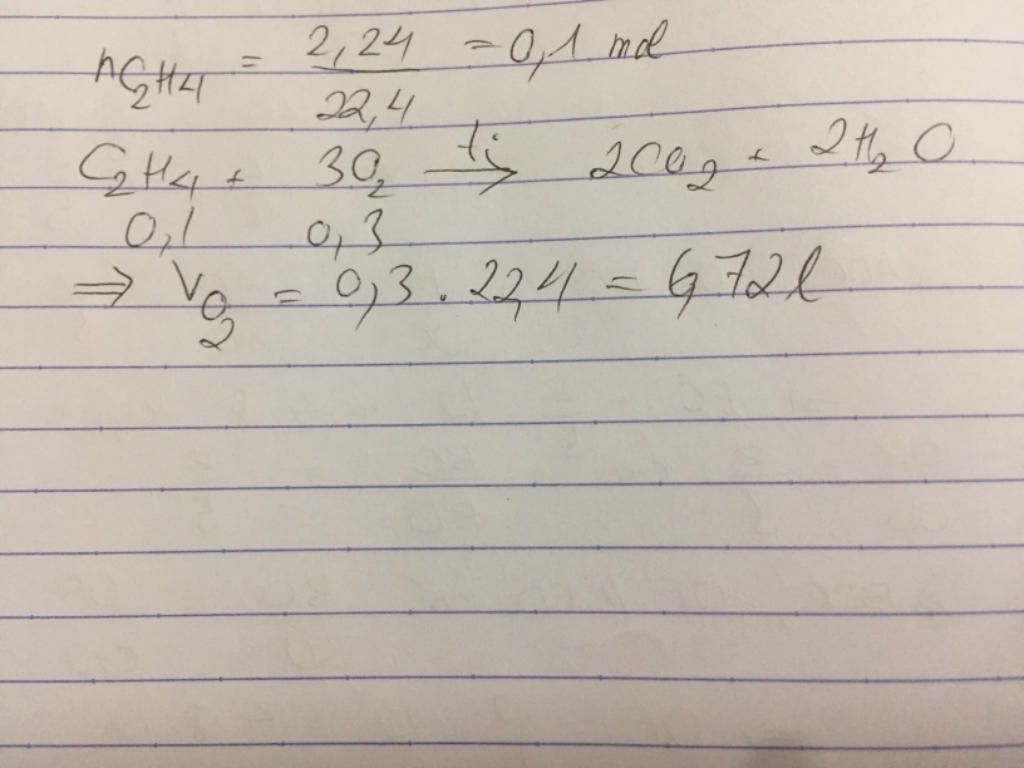 nC₂H₄ = 2,24 / 22,4 = 0,1 mol
C₂H₄ + 3O₂ → 2CO₂ + 2H₂O
0,1 0,3
⇒ V O₂ = 0,3 . 22,4 = 6,72 l